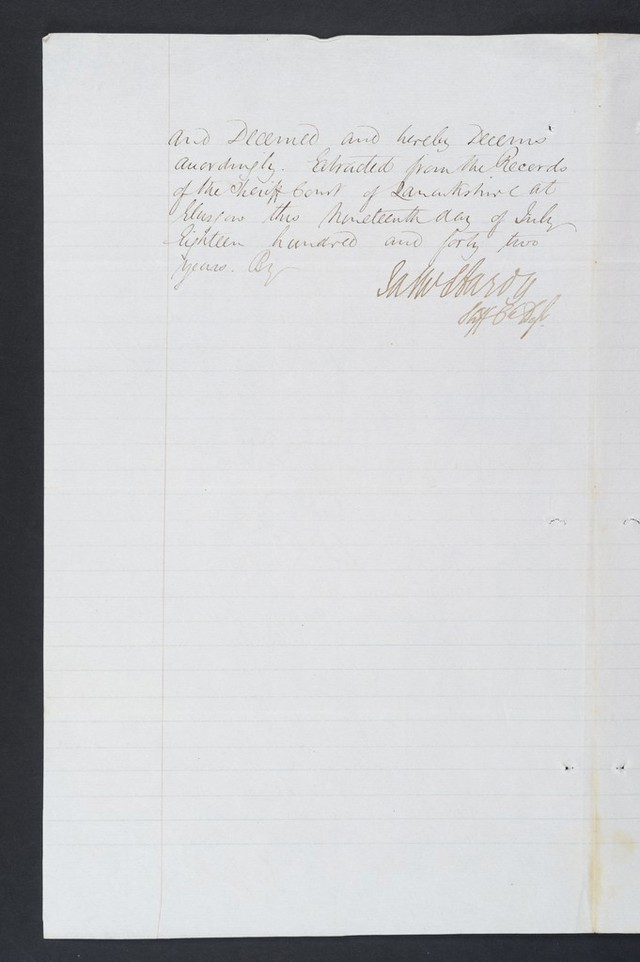 and Decerned and hereby Decerns
accordingly. Extracted from the Records
of the Sheriff Court of Lanarkshire at
Glasgow this Nineteenth day of July
Eighteen hundred and forty two
years. By
Hardy